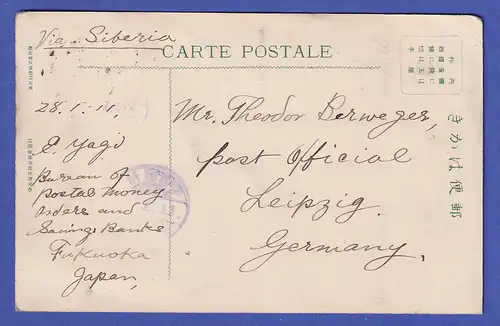 Via Siberia
CARTE POSTALE
28. 1. 11.
E. Yagi
Bureau of
postal money
orders and
Savings Banks
Fukuoka
Japan,
Mr. Theodor Berweger,
post Official
Leipzig.
Germany.
きかは便郵